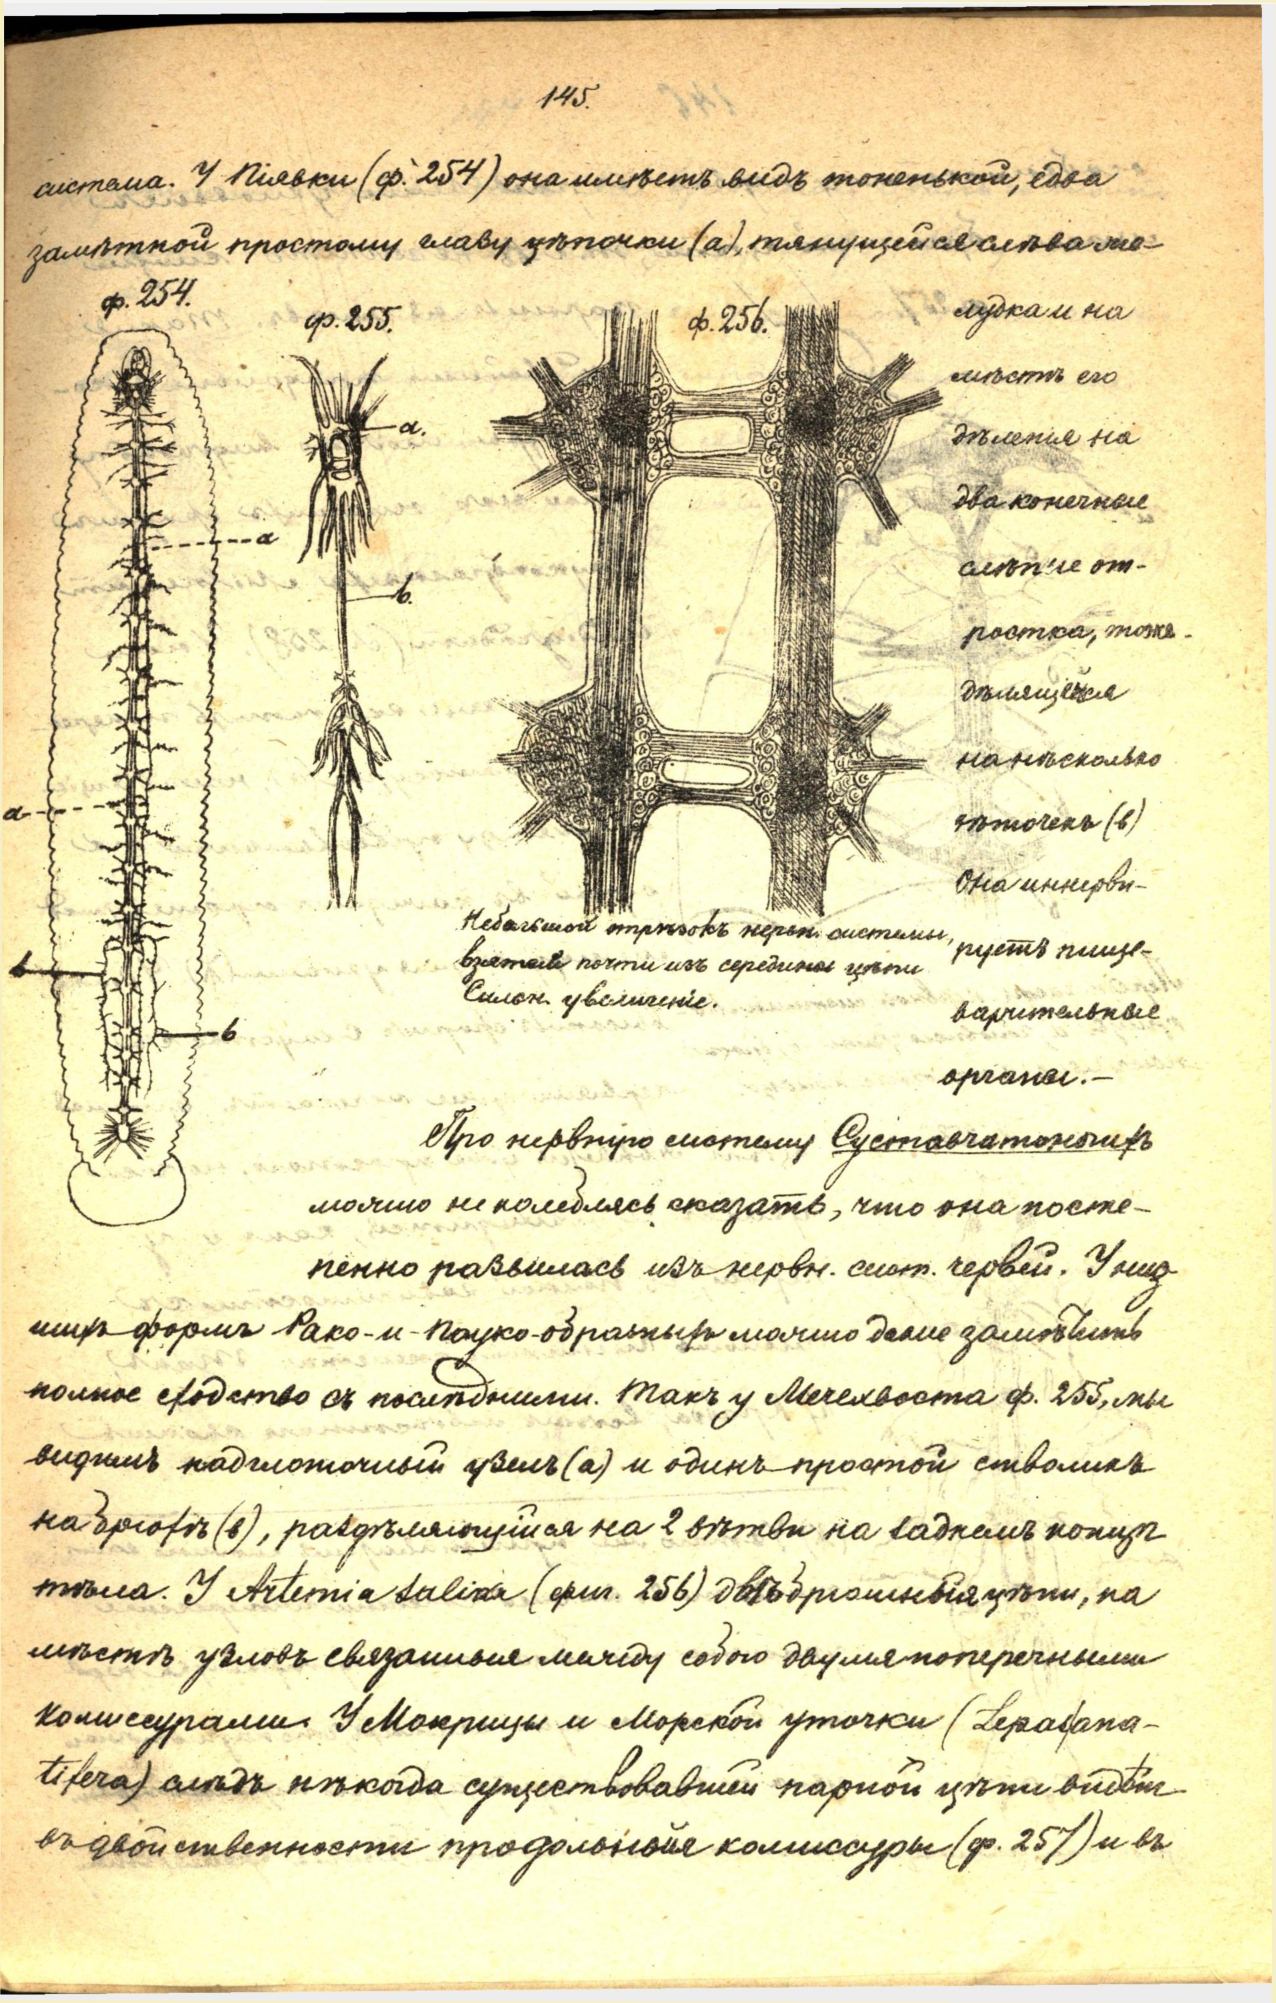 145.
система. У Піявки (ф. 254) она имѣетъ видъ тоненькой, едва
замѣтной простому глазу цѣпочки (а), тянущейся слѣва же-
ф. 254.
ф. 255.
ф. 256.
а.
а
в.
а
в
в
лудка и на
мѣстѣ его
дѣленія на
два конечные
слѣпые от-
ростка, тоже
дѣлящейся
на нѣсколько
вѣточекъ (в)
Она иннерви-
руетъ пище-
варительные
органы.—
Небольшой отрѣзокъ нервн. системы,
взятый почти изъ середины цѣпи
Сильн. увеличеніе.
Про нервную систему Суставчатоногихъ
можно не колеблясь сказать, что она посте-
пенно развилась изъ нервн. сист. червей. У низ-
шихъ формъ Рако-и-Пауко-образныхъ можно даже замѣтить
полное сходство съ послѣдними. Такъ у Мечехвоста ф. 255, мы
видимъ надглоточный узелъ (а) и одинъ простой стволикъ
на брюхѣ (в), раздѣляющійся на 2 вѣтви на заднемъ концѣ
тѣла. У Artemia salina (фиг. 256) двѣ брюшныя цѣпи, на
мѣстѣ узловъ связанныя между собою двумя поперечными
комиссурами. У Мокрицы и Морской уточки (Lepas ana-
tifera) слѣдъ нѣкогда существовавшей парной цѣпи видѣнъ
въ двойственности продольной комиссуры (ф. 257) и въ